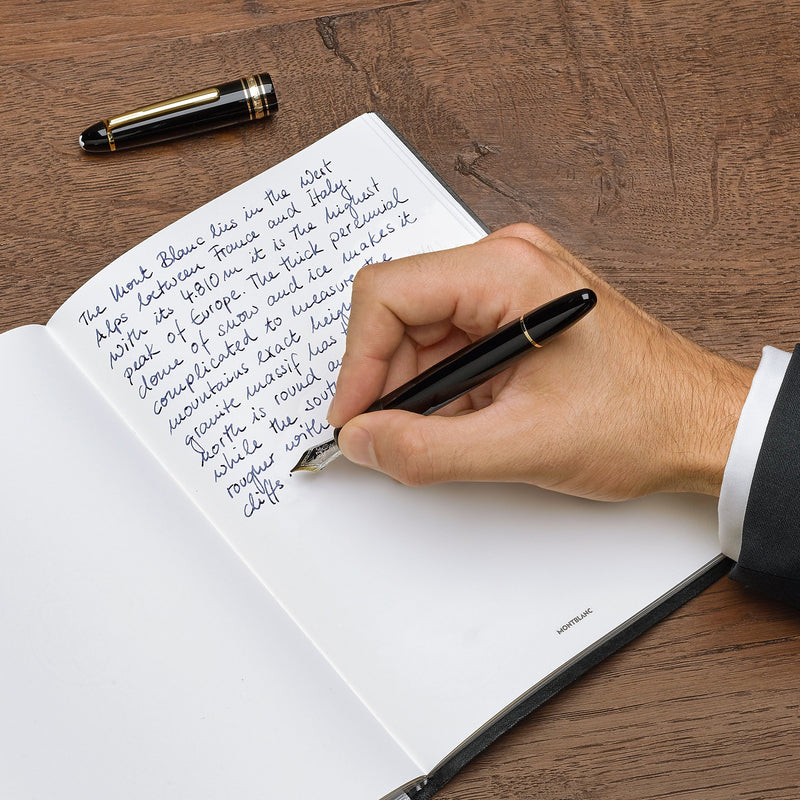 The Mont Blanc lies in the West
Alps between France and Italy.
With its 4.810 m it is the highest
peak of Europe. The thick perennial
dome of snow and ice makes it
complicated to measure the
mountains exact
granite massif has
north is round
while the
rougher with
cliffs
MONTBLANC